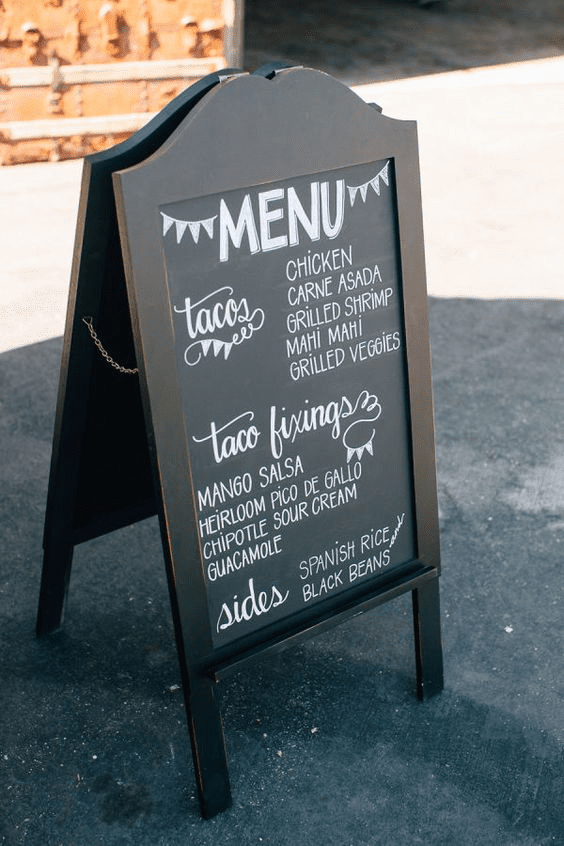 MENU
tacos
CHICKEN
CARNE ASADA
GRILLED SHRIMP
MAHI MAHI
GRILLED VEGGIES
taco fixings
MANGO SALSA
HEIRLOOM PICO DE GALLO
CHIPOTLE SOUR CREAM
GUACAMOLE
sides
SPANISH RICE and
BLACK BEANS